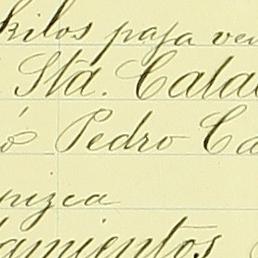 kilos paja ven
Sta. Catal
ó Pedro Ca
nizca
tamientos